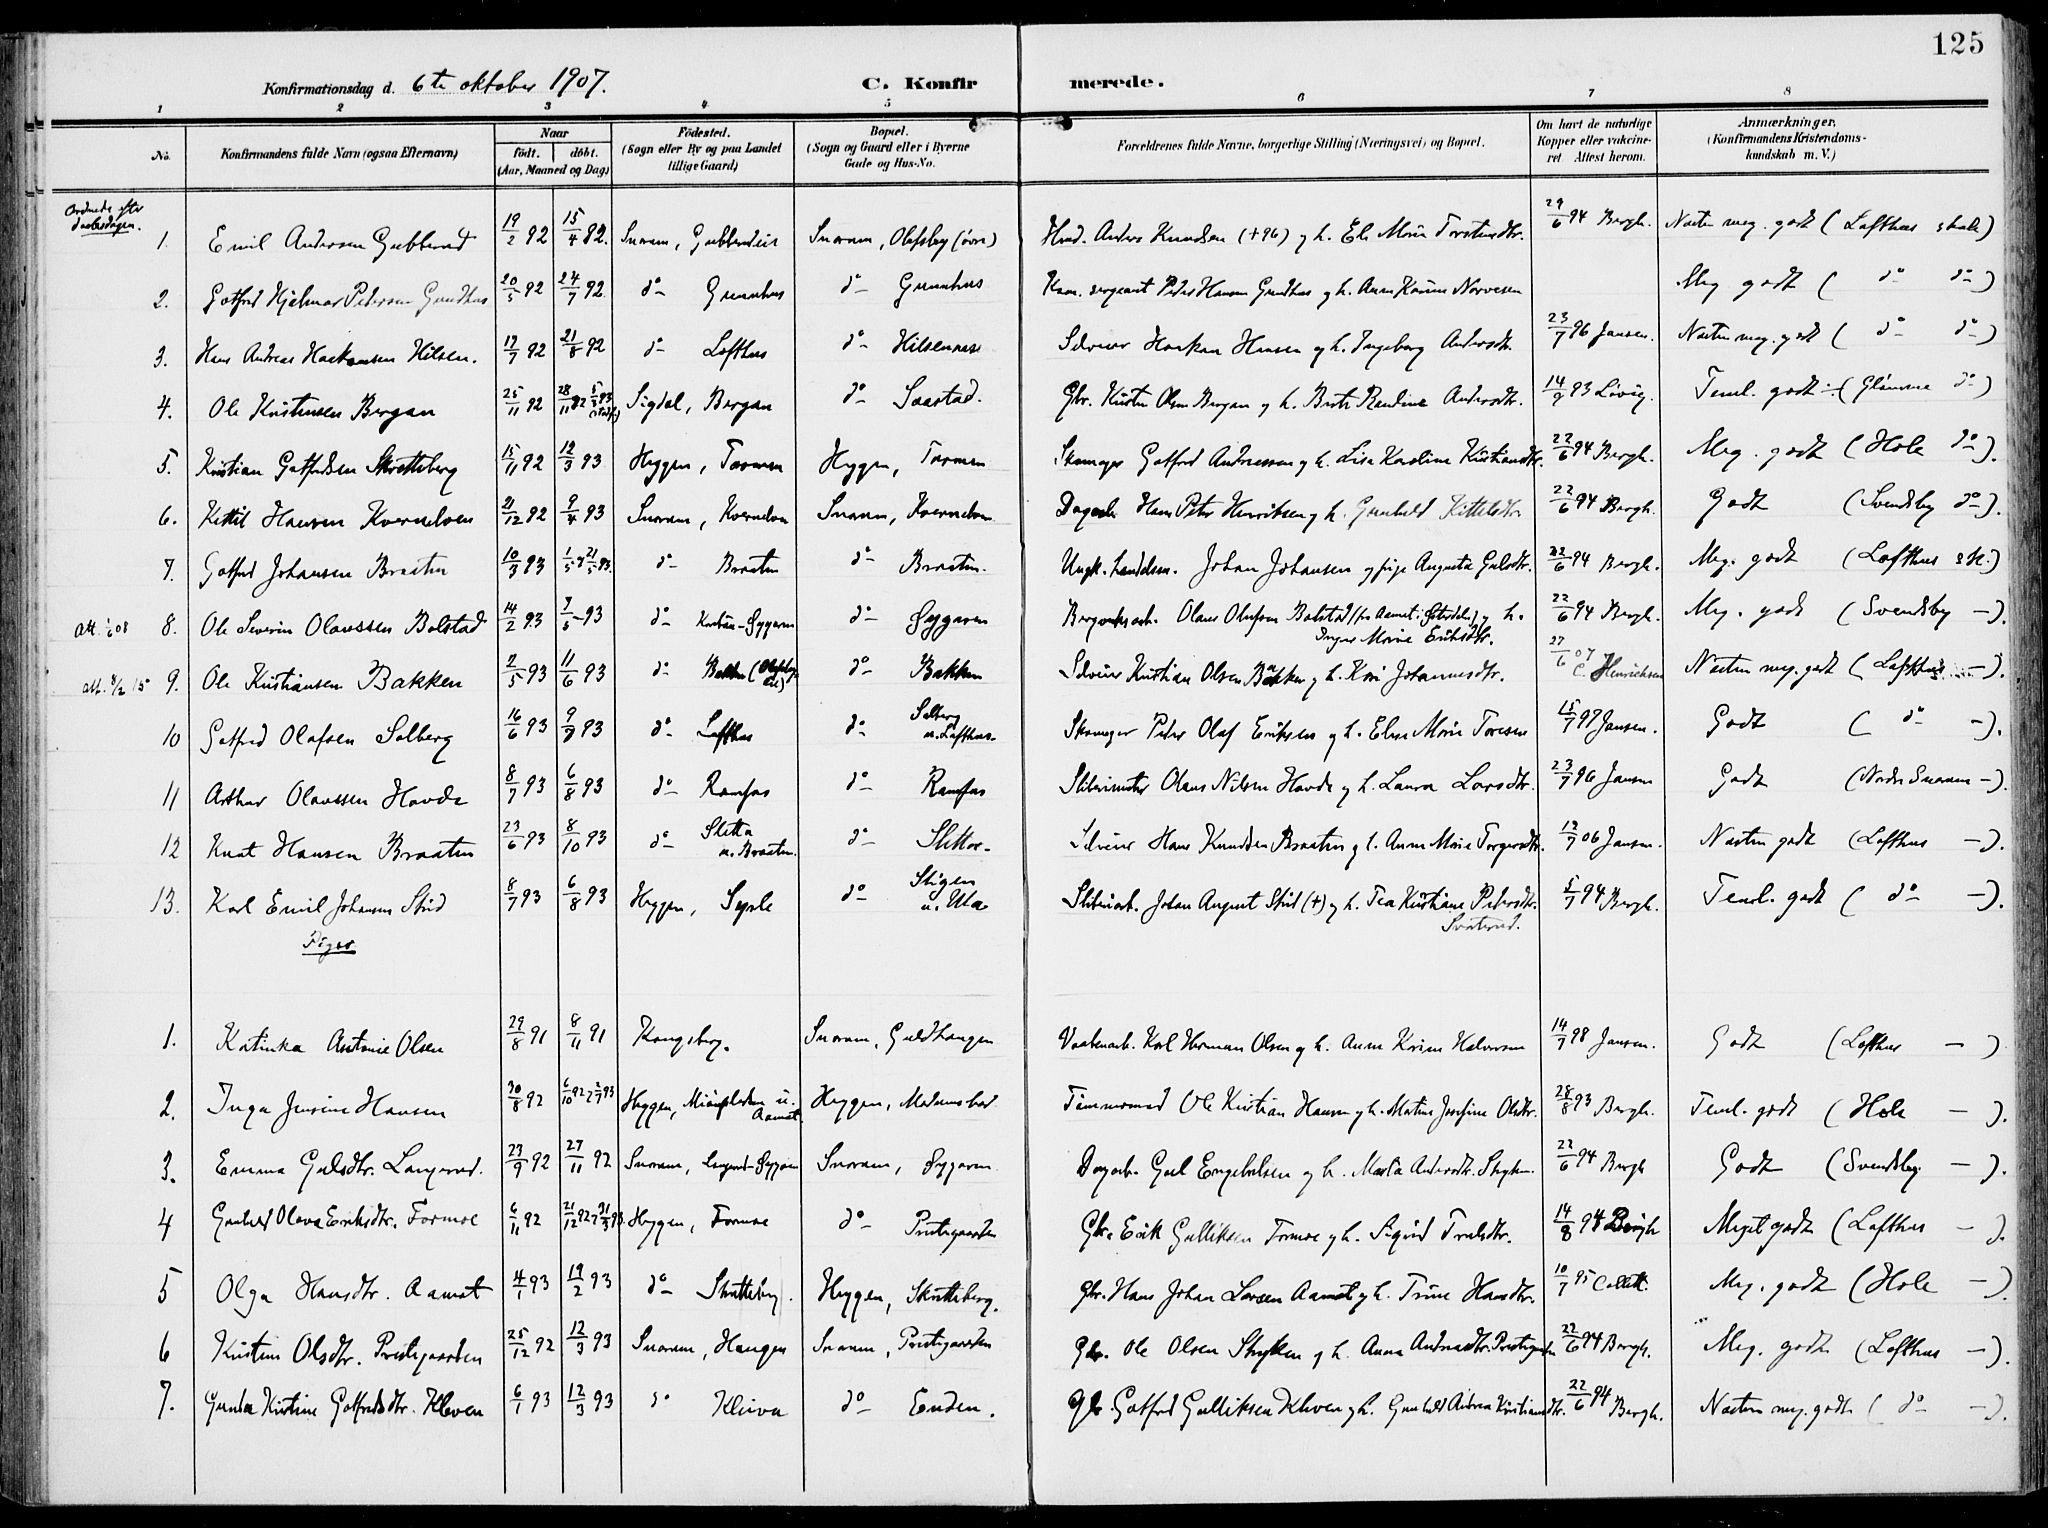 125
Konfirmationsdag d. 6te oktober 1907. C. Konfirmerede.
1 2 3 4 5 6 7 8
No. Konfirmandens fulde Navn (ogsaa Efternavn) Naar født. døbt. (Aar, Maaned og Dag) Fødested. (Sogn eller By og paa Landet tillige Gaard) Bopæl. (Sogn og Gaard eller i Byerne Gade og Hus-No. Forældrenes fulde Navne, borgerlige Stilling (Næringsvei) og Bopæl. Om havt de naturlige Kopper eller vakcineret Attest herom. Anmærkninger. (Konfirmandens Kristendomskundskab m. V.)
Ordnede efter daabsdagen.
1. Emil Andersen Gubberud 19/2 92 15/4 92. Snarum, Snarum, Olafsby (øvre) Anders Knudsen (+96) g h. Eli Marie 29/6 94 Bergh. Næsten meg. godt (Lofthus skole)
2. Gotfred Hjalmar Pedersen Grundhus 20/5 92 24/7 92 do Grunnhus do Grunnhus sergeant Peder Hansen Grundhus g h. Anne Karine Meg godt ( do do )
3. Hans Andreas Haakonsen Hilsen. 17/7 92 21/8 92 do Lofthus do Haakon Hansen g h. Ingeborg Andersdtr. 23/7 96 Jansen. Næsten meg. godt ( do do )
4. Ole Kristensen Bergan 25/11 92 28/11 92 Sigdal, Bergan do Saastad. Gbr. Kristen Olsen Bergan g h. Berte Pauline Andersdtr. 14/9 93 Temel. godt ÷ (Glømme do )
5. Kristian Gotfredsen Skretteberg 15/11 92 12/3 93 Heggen, Heggen, Skomager Gotfred Andreassen g h. Lisa Karoline Kristiansdtr. 22/6 94 Bergh. Meg. godt (Hole do ).
6. Kittil Hansen Kvernelven 21/12 92 9/4 93 Snarum, Kvernelven Snarum, Kvernelven Hans Peter Henriksen g h. Gunhild Kittelsdtr. 22/6 94 Bergh. Godt (Svendsby do ).
7. Gotfred Johansen Braaten 10/3 93 1/5 21/5 93. do Braaten do Braaten. Ungk. Johan Johansen og pige Augusta Gulsdtr. 22/6 94 Bergh. Meg. godt (Lofthus sk.)
Att. 1/6 08 8. Ole Severin Olaussen Bolstad 14/2 93 7/5 93 do do Sygarn Olaus Olafsen Bolstad g h. Inger Marie Eriksdtr. 22/6 94 Bergh. Meg. godt (Svendsby — ).
att. 8/2 15 9. Ole Kristiansen Bakken 2/5 93 11/6 93 do Bakken do Bakken Kristian Olsen Bakken g h. Kari Johannesdtr. 27/6 07 C. Henrichsen Næsten meg. godt (Lofthus — ).
10 Gotfred Olafsen Solberg 16/6 93 9/7 93 do Lofthus do Solberg u. Lofthus Skomager Peder Olaf Eriksen g h. Elise Marie Toresen 15/7 97 Jansen. Godt ( do — ).
11 Arthur Olaussen Hovde 8/7 93 6/8 93 do Ramfos do Ramfos Olaus Nilsen Hovde g h. Laura Larsdtr. 23/7 96 Jansen Godt (Nedre Snarum — ).
12 Knut Hansen Braaten 23/6 93 8/10 93 do Sletta u. Braaten. do Slettor Hans Knudsen Braaten g h. Anne Marie Torgersdtr. 12/7 06 Jansen. Næsten godt (Lofthus — ).
13. Karl Emil Johansen Stid 8/7 93 6/8 93 Heggen, Sysle do Stigen u. Ula Johan August Stid (+) g h. Tea Kristiane Pedersdtr. 5/7 94 Bergh. Temel. godt ( do — ).
Piger
1. Katinka Antonie Olsen 29/8 91 8/11 91 Kongsberg. Snarum, Guldhaugen Vaabenarb. Karl Herman Olsen g h. Anne Karine Halvorsen 14/7 98 Jansen. Godt (Lofthus — )
2. Inga Jensine Hansen 30/8 92 6/10 92 2/7 93 Heggen, u. Aamot. Heggen, Modumsbad. Tømmermand Ole Kristian Hansen g h. Martine Josefine Olsdtr. 28/8 93 Bergh. Temel. godt (Hole — ).
3. Emma Gulsdtr. Langerud. 23/9 92 27/11 92 Snarum, Snarum, Sygarn Dagarb. Gul Engebretsen g h. Marta Andersdtr. 22/6 94 Bergh Godt (Svendsby — ).
4 Gunhild Olava Eriksdtr. Formoe 6/11 92 21/12 92 Heggen, Formoe do Prestegaarden Gbr. Erik Gulliksen Formoe g h. Sigrid Trulsdtr. 14/8 94 Bergh Meget godt (Lofthus — ).
5 Olga Hansdtr. Aamot 4/1 93 19/2 93 do Skretteberg. Heggen, Skretteberg. Gbr. Hans Johan Larsen Aamot g h. Trine Hansdtr. 10/7 95 Collett. Meg. godt (Hole — ).
6 Kristine Olsdtr. Prestegaarden 25/12 92 12/3 93 Snarum, Haugen Snarum, Prestegaarden Gbr. Ole Olsen g h. Anna Andreasdtr. Prestegaarden 22/6 94 Bergh. Meg. godt (Lofthus — ).
7. Gunda Kristine Gotfredsdtr. Kleven 6/1 93 12/3 93 do Kleiva do Enden. Gbr Gotfred Gulliksen Kleven g h. Gunhild Andrea Kristiansdtr. 22/6 94 Bergh. Næsten meg. godt ( do — ).